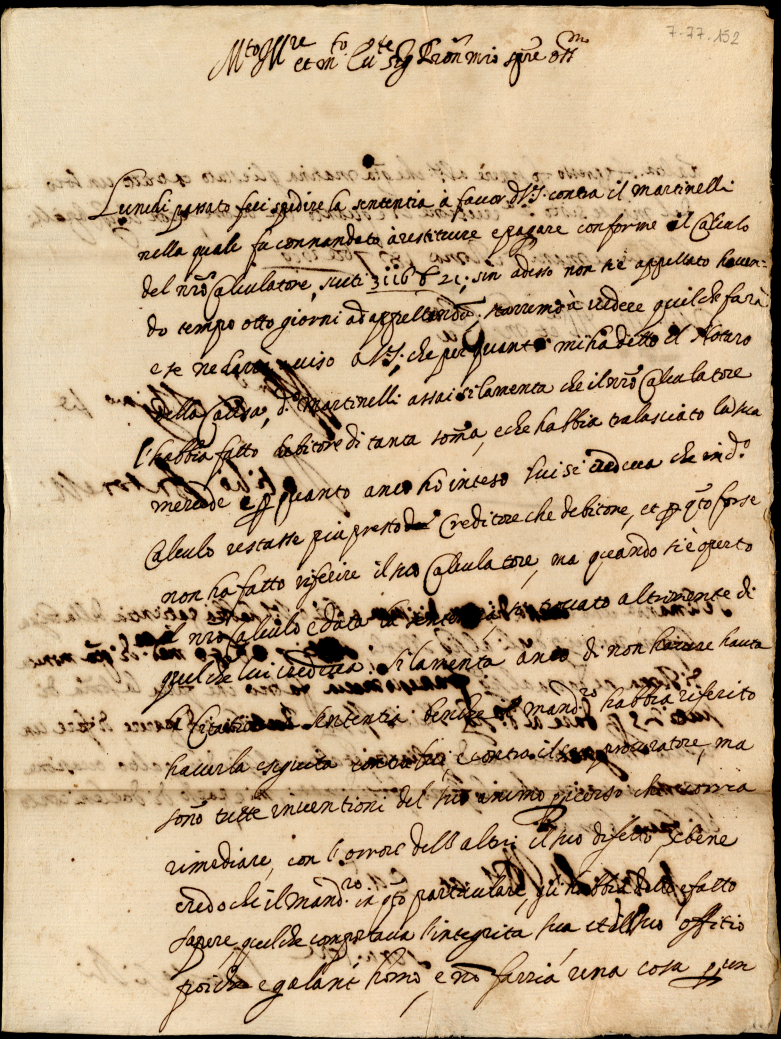 7-77.152
Mto Mre
et mto Cu te Sig Pron mio spre oss mo
Lunedi passato feci spedire la sententia à favor di V.S. contra il Martinelli
nella quale fu commandato à restituire e pagare conforme il Calculo
del nrõ Calculatore, scuti 3116 6 21; sin adesso non s'è appellato haven=
do tempo otto giorni ad appellarsi; staremo à vedere quel che farà
e se ne darà aviso a V.S., che per quanto mi ha detto il Notaro
della Causa, do Martinelli assai si lamenta che il nrõ Calculatore
l'habbia fatto debitore di tanta somã, e che habbia tralasciato la sua
mercede e p quanto anco ho inteso lui si credeva che in do
Calculo restasse più presto Creditore che debitore, et p qto forse
non ha fatto riferire il suo Calculatore, ma quando s'è aperto
il nrõ Calculo e data la sententia, ha trovato altrimente di
quel che lui credeva, si lamenta anco di non havere hauta
la Citatione sententia benche il mand.ro habbia riferito
haverla esequita contra lui e contra il suo procuratore, ma
sonõ tutte inventioni del suo animo che vorria
rimediare, con l'errore dell'altri il suo difetto, sebene
credo che il mand.ro in qto particulare, gli habbia detto e fatto
sapere, quel che comportava l'integrità sua et del suo offitio
poiche e galant' homo, e nõ farria una cosa p un